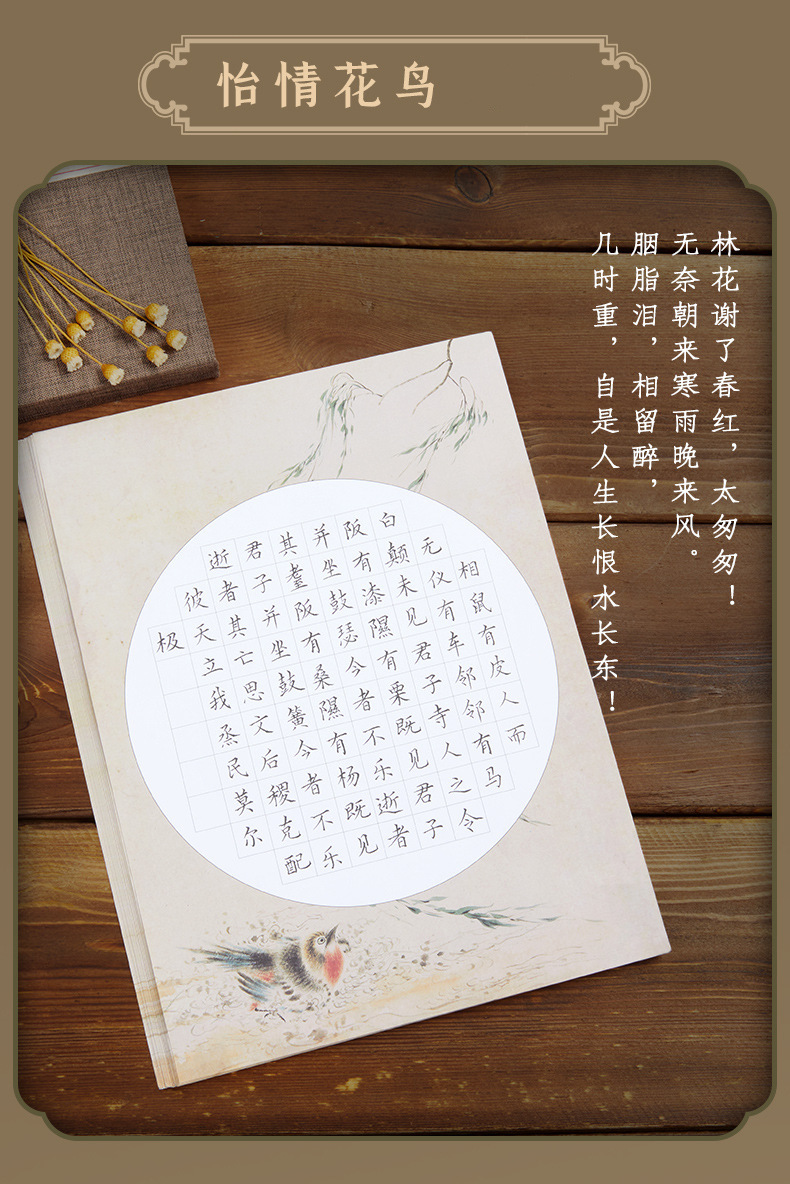 怡情花鸟
林花谢了春红，太匆匆！
无奈朝来寒雨晚来风。
胭脂泪，相留醉，
几时重，自是人生长恨水长东！
相鼠有皮人而
无仪有车邻邻有马
白颠未见君子寺人之令
阪有漆隰有栗既见君子
并坐鼓瑟今者不乐逝者
其耋阪有桑隰有杨既见
君子并坐鼓簧今者不乐
逝者其亡思文后稷克配
彼天立我烝民莫尔
极